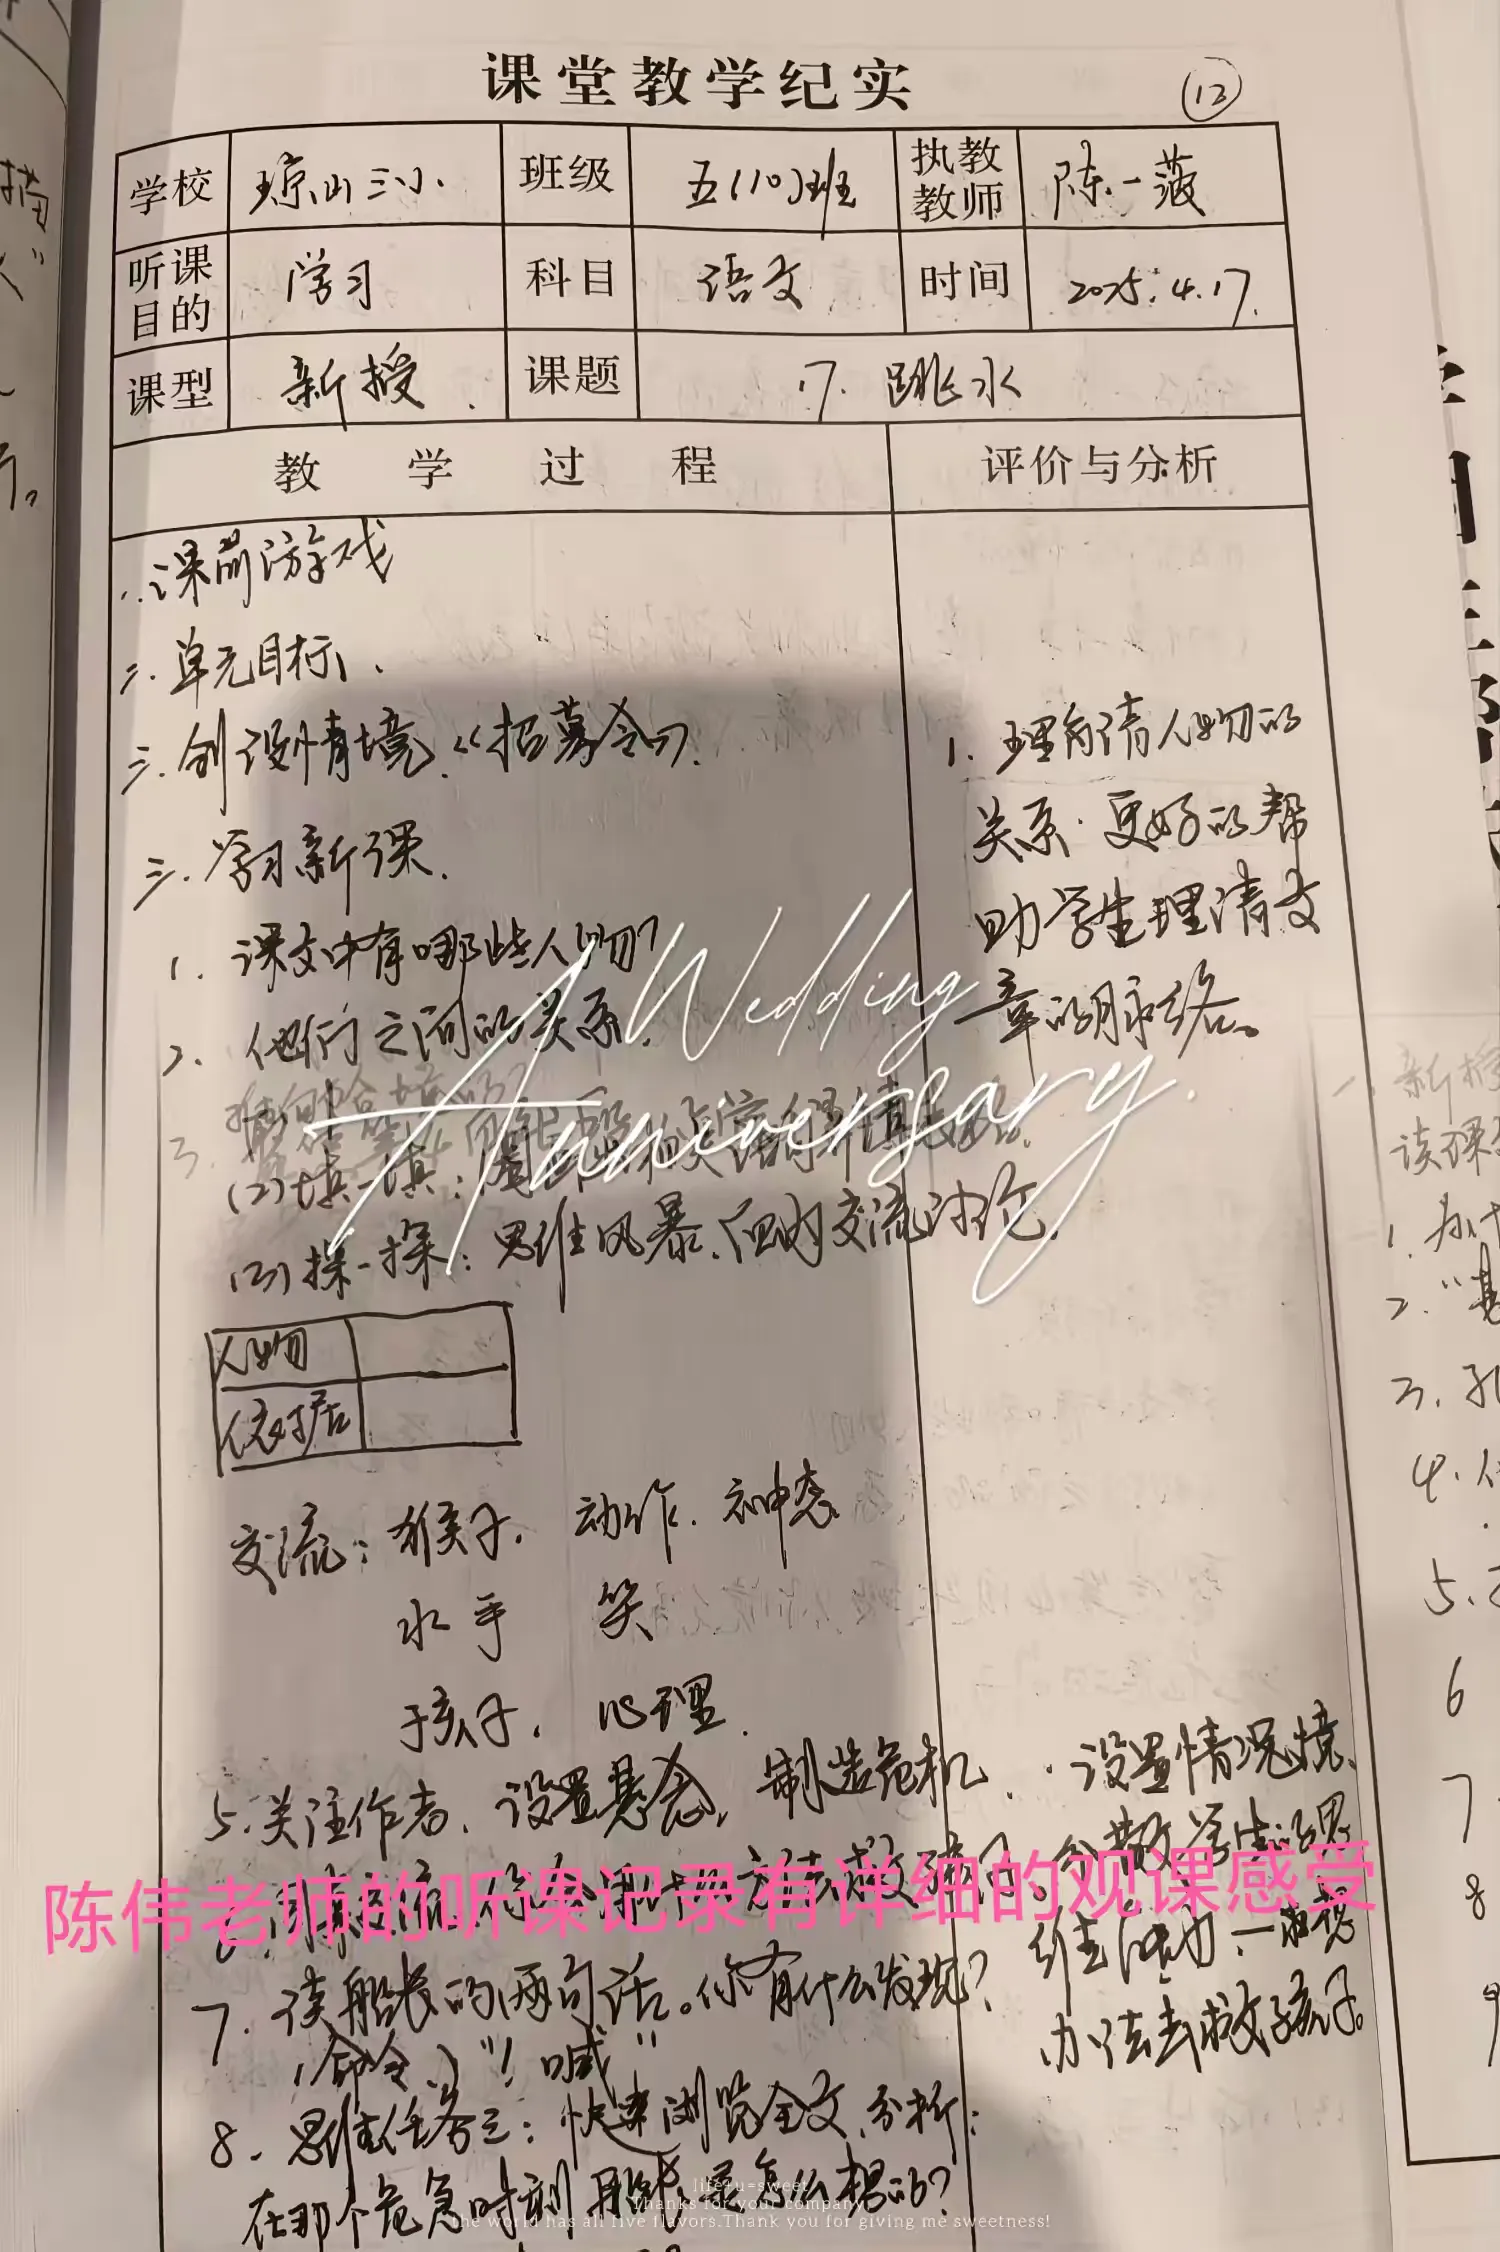 课堂教学纪实
12
学校 琼山三小 班级 五(10)班 执教教师 陈一薇
听课目的 学习 科目 语文 时间 2025.4.17.
课型 新授. 课题 17. 跳水
教学过程 评价与分析
一.课前游戏
二.单元目标.
三.创设情境.《招募令》.
三.学习新课.
1. 课文中有哪些人物?
2. 他们之间的关系.
1. 理解清人物的
关系.更好的帮
助学生理清文
章的脉络。
A Wedding
Anniversary.
3.
(2)填一填:
(3)探一探:思维风暴.组内交流讨论.
人物
依据
交流:猴子. 动作.神态
水手 笑
孩子. 心理.
5.关注作者.设置悬念,制造危机.
6.
陈伟老师的听课记录有详细的观课感受
7.读船长的两句话。你有什么发现?
(命令.)"!喊"
8.思维任务三:快速浏览全文.分析:
在那个危急时刻船长是怎么想的?
·设置情况境、
分散学生的思
维活动.一起想
办法去救孩子。
life+u=sweet
Thanks for your company
the world has all five flavors.Thank you for giving me sweetness!
一.新授
读课
1.为什
2."
3.孔
4.
5.
6
7.
8
9